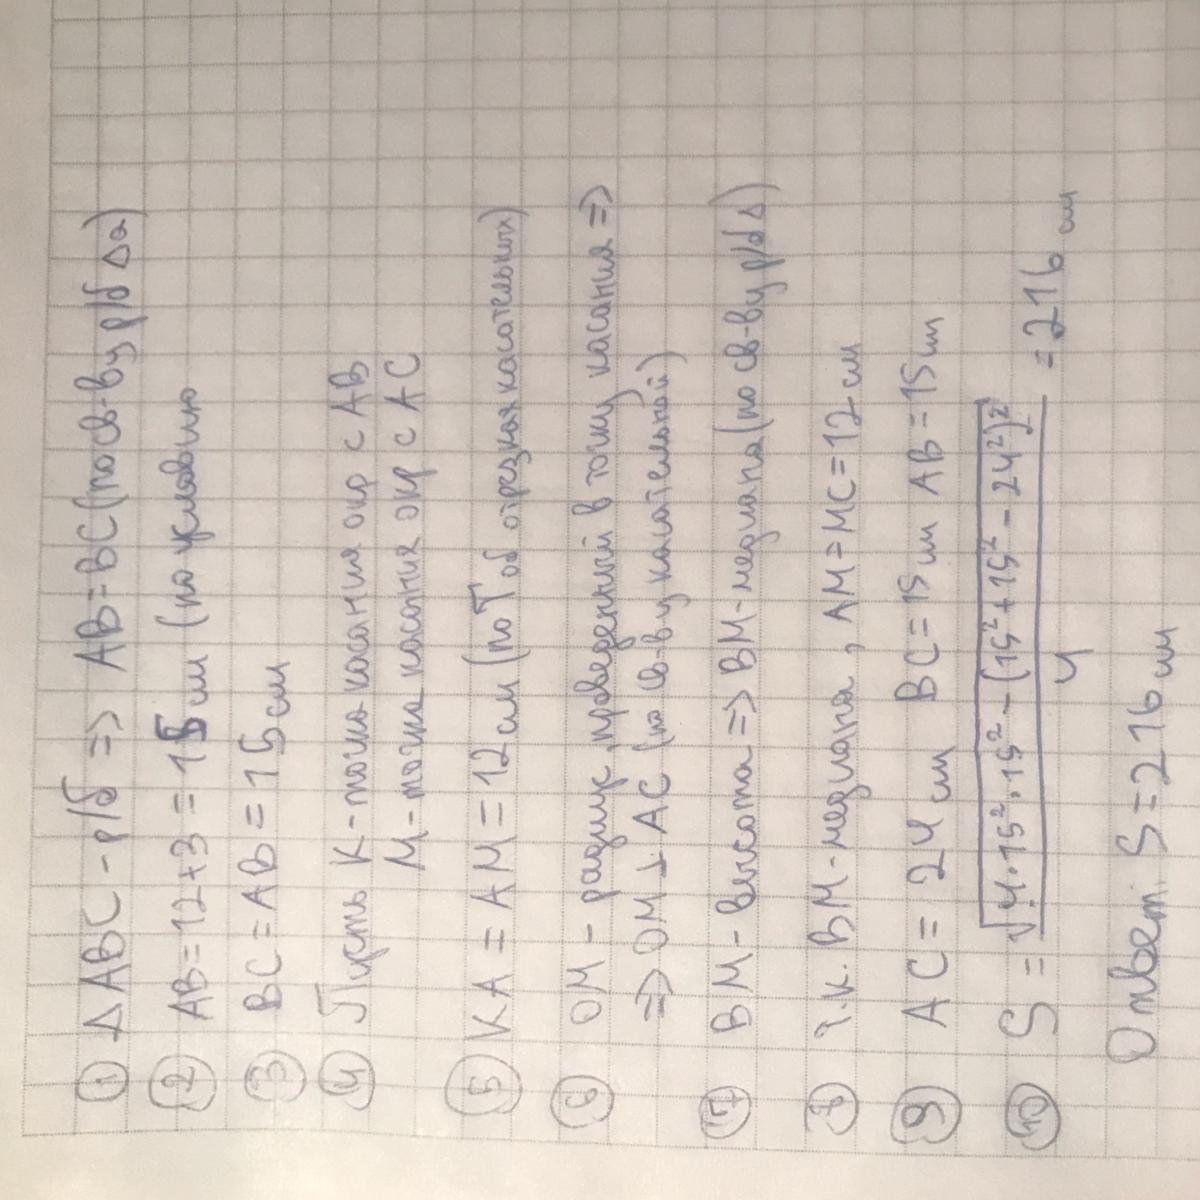 ① Δ ABC - р/б => AB = BC (по св-ву р/б Δа)
② AB = 12+3 = 15 см (по условию
③ BC = AB = 15 см
④ Пусть K - точка касания окр с AB
M - точка касания окр с AC
⑤ KA = AM = 12 см (по Т об отрезках касательных)
⑥ OM - радиус, проведенный в точку касания =>
=> OM ⊥ AC (по св-ву касательной)
⑦ BM - высота => BM - медиана (по св-ву р/б Δ)
⑧ т.к. BM - медиана, AM = MC = 12 см
⑨ AC = 24 см BC = 15 см AB = 15 см
⑩ S = √4·15²·15² - (15² + 15² - 24²)² / 4 = 216 см
Ответ: S = 216 см